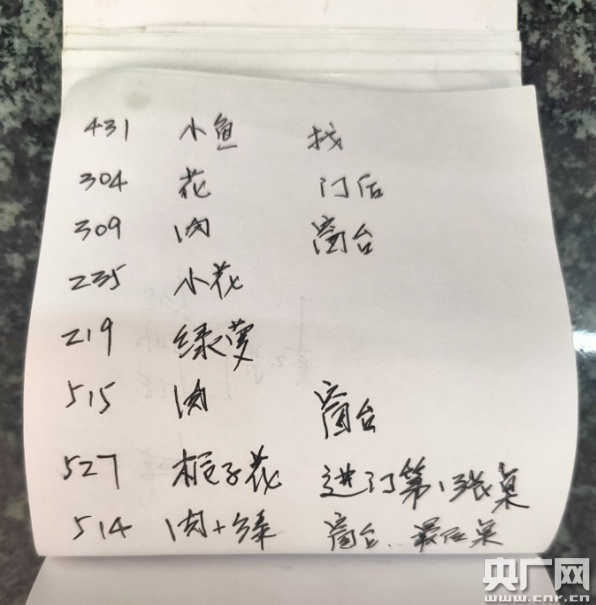 431 小鱼 找
304 花 门后
309 肉 窗台
235 小花
219 绿萝
515 肉 窗台
527 栀子花 进门第1张桌
514 肉+绿 窗台、最后桌
央广网
www.cnr.cn